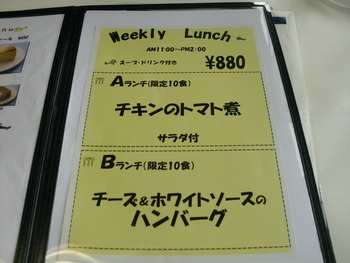 Weekly Lunch
AM11:00～PM2:00
スープ・ドリンク付き
¥880
Aランチ(限定10食)
チキンのトマト煮
サラダ付
Bランチ(限定10食)
チーズ&ホワイトソースの
ハンバーグ
¥450